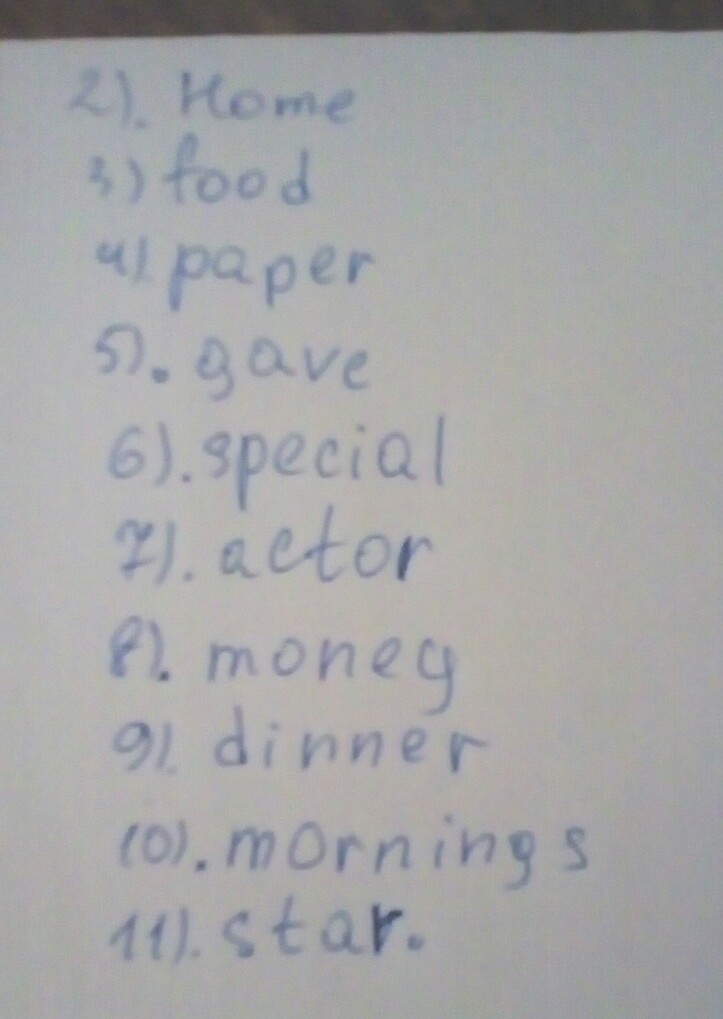 2). Home
3) food
4) paper
5). gave
6). special
7). actor
8). money
9). dinner
10). mornings
11). star.